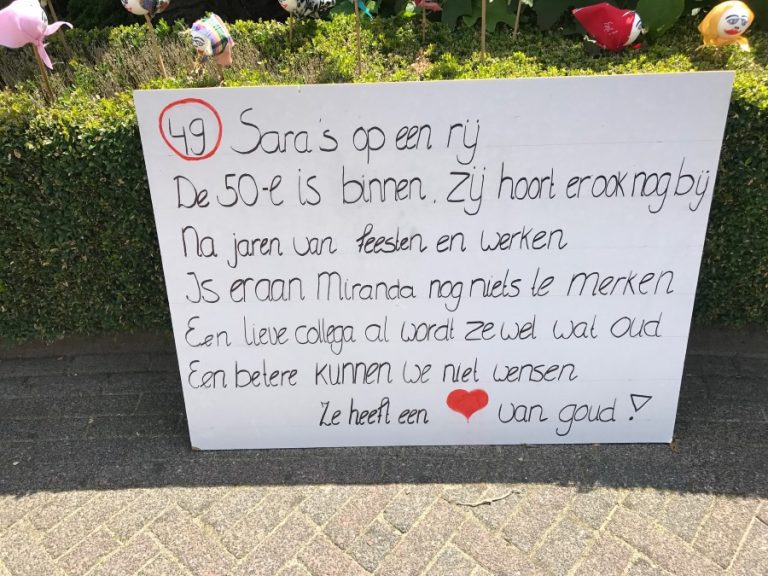 49 Sara's op een rij
De 50-e is binnen. Zij hoort er ook nog bij
Na jaren van feesten en werken
Is er aan Miranda nog niets te merken
Een lieve collega al wordt ze wel wat oud
Een betere kunnen we niet wensen
Ze heeft een ❤ van goud!